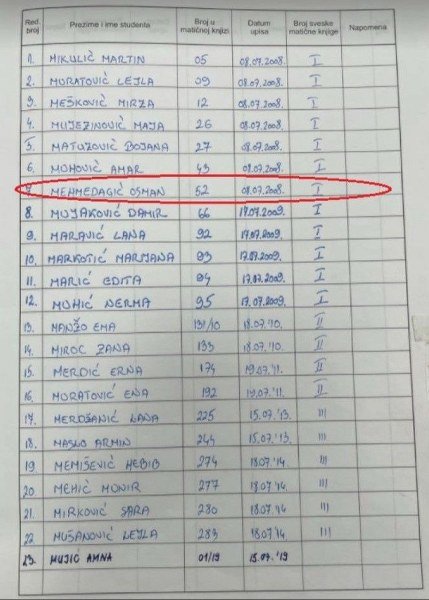 Red. broj Prezime i ime studenta Broj u matičnoj knjizi Datum upisa Broj sveske matične knjige Napomena
1. MIKULIĆ MARTIN 05 08.07.2008. I
2. MURATOVIĆ LEJLA 09 08.07.2008. I
3. MEŠKOVIĆ MIRZA 12 08.07.2008. I
4. MUJEZINOVIĆ MAJA 26 08.07.2008. I
5. MATUZOVIĆ BOJANA 27 08.07.2008. I
6. MUHOVIĆ AMAR 43 08.07.2008. I
7. MEHMEDAGIĆ OSMAN 52 08.07.2008. I
8. MUJAKOVIĆ DAMIR 66 17.07.2009. I
9. MARAVIĆ LANA 92 17.07.2009. I
10. MARKOTIĆ MARIJANA 93 17.07.2009. I
11. MARIĆ EDITA 94 17.07.2009. I
12. MUHIĆ NERMA 95 17.07.2009. I
13. MANŽO EMA 131/10 18.07.'10. II
14. MIROČ ZANA 133 18.07.'10. II
15. MERDIĆ ERNA 174 19.07.'11. II
16. MORATOVIĆ ENA 192 19.07.'11. II
17. MERDŽANIĆ LANA 225 15.07.'13. III
18. MASLO ARMIN 244 15.07.'13. III
19. MEMIŠEVIĆ HEBIB 274 18.07.'14. III
20. MEHIĆ MUNIR 277 18.07.'14. III
21. MIRKOVIĆ SARA 280 18.07.'14. III
22. MUŠANOVIĆ LEJLA 283 18.07.'14 III
23. MUJIĆ AMNA 01/19 15.07.'19